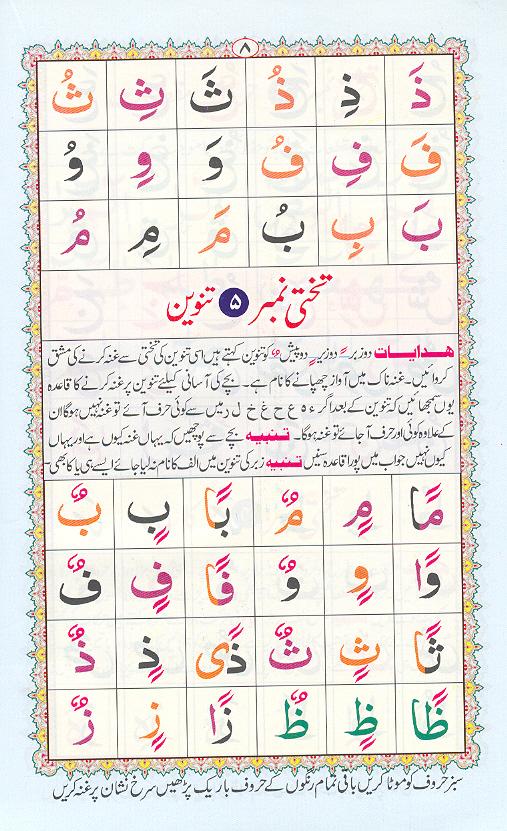 ۸
ذَ ذِ ذُ ثَ ثِ ثُ
فَ فِ فُ وَ وِ وُ
بَ بِ بُ مَ مِ مُ
تختی نمبر ۵ تنوین
ہدایات دوزبر ً دوزیر ٍ دوپیش ٌ کو تنوین کہتے ہیں اسی تنوین کی تختی سے غنہ کرنے کی مشق
کروائیں۔ غنہ ناک میں آواز چھپانے کا نام ہے۔ بچے کی آسانی کیلئے تنوین پر غنہ کرنے کا قاعدہ
یوں سمجھائیں کہ تنوین کے بعد اگر ء ہ ع ح غ خ ل ر میں سے کوئی حرف آئے تو غنہ نہیں ہوگا ان
کے علاوہ کوئی اور حرف آجائے تو غنہ ہوگا۔ تنبیہ بچے سے پوچھیں کہ یہاں غنہ کیوں ہے اور یہاں
کیوں نہیں جواب میں پورا قاعدہ سنیں تنبیہ زبر کی تنوین میں الف کا نام نہ لیا جائے ایسے ہی یا کا بھی
مًا مٍ مٌ بًا بٍ بٌ
وًا وٍ وٌ فًا فٍ فٌ
ثًا ثٍ ثٌ ذًی ذٍ ذٌ
ظًا ظٍ ظٌ زًا زٍ زٌ
سبز حروف کو موٹا کریں باقی تمام رنگوں کے حروف باریک پڑھیں سرخ نشان پر غنہ کریں